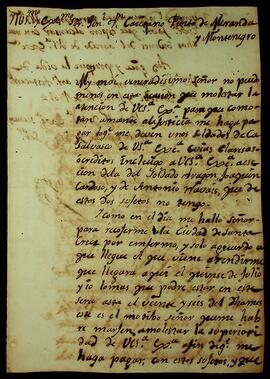 Yll.mo y Ex.mo S.or Dn. Caietano Pinto de Miranda
y Montenegro
Mÿ mui veneradisimo señor no puedo
menos en esta ocasion que molestar la
atencion de VSª. Exª. para que como
tan amante a la Justicia me haga pa
gar lo q.e me deven unos soldados de Ca
salvasco de VSª. Exª. cuias clarasas
o creditos Incluigo a VSª. Exª. a es
cecion de la del Soldado Aragon Joaquin
Cardoso, y de Antonio Navais, que de
estos dos sujetos no tengo.
Y como en el dia me hallo Señor
para retirarme a la Ciudad de Santa
Cruz por emfermo, y solo aguardo a
que llegue el que viene a rendirme
que llegará aqui el quinse de Julio
y io lo mas que podre estar en este
sera asta el veinte, y seis del dho. mes
este es el motibo señor que me ha
he mas en amolestar la superiori
dad de VSª. Exª. a fin de q.e me
haga pagar, con estos sujetos, y que